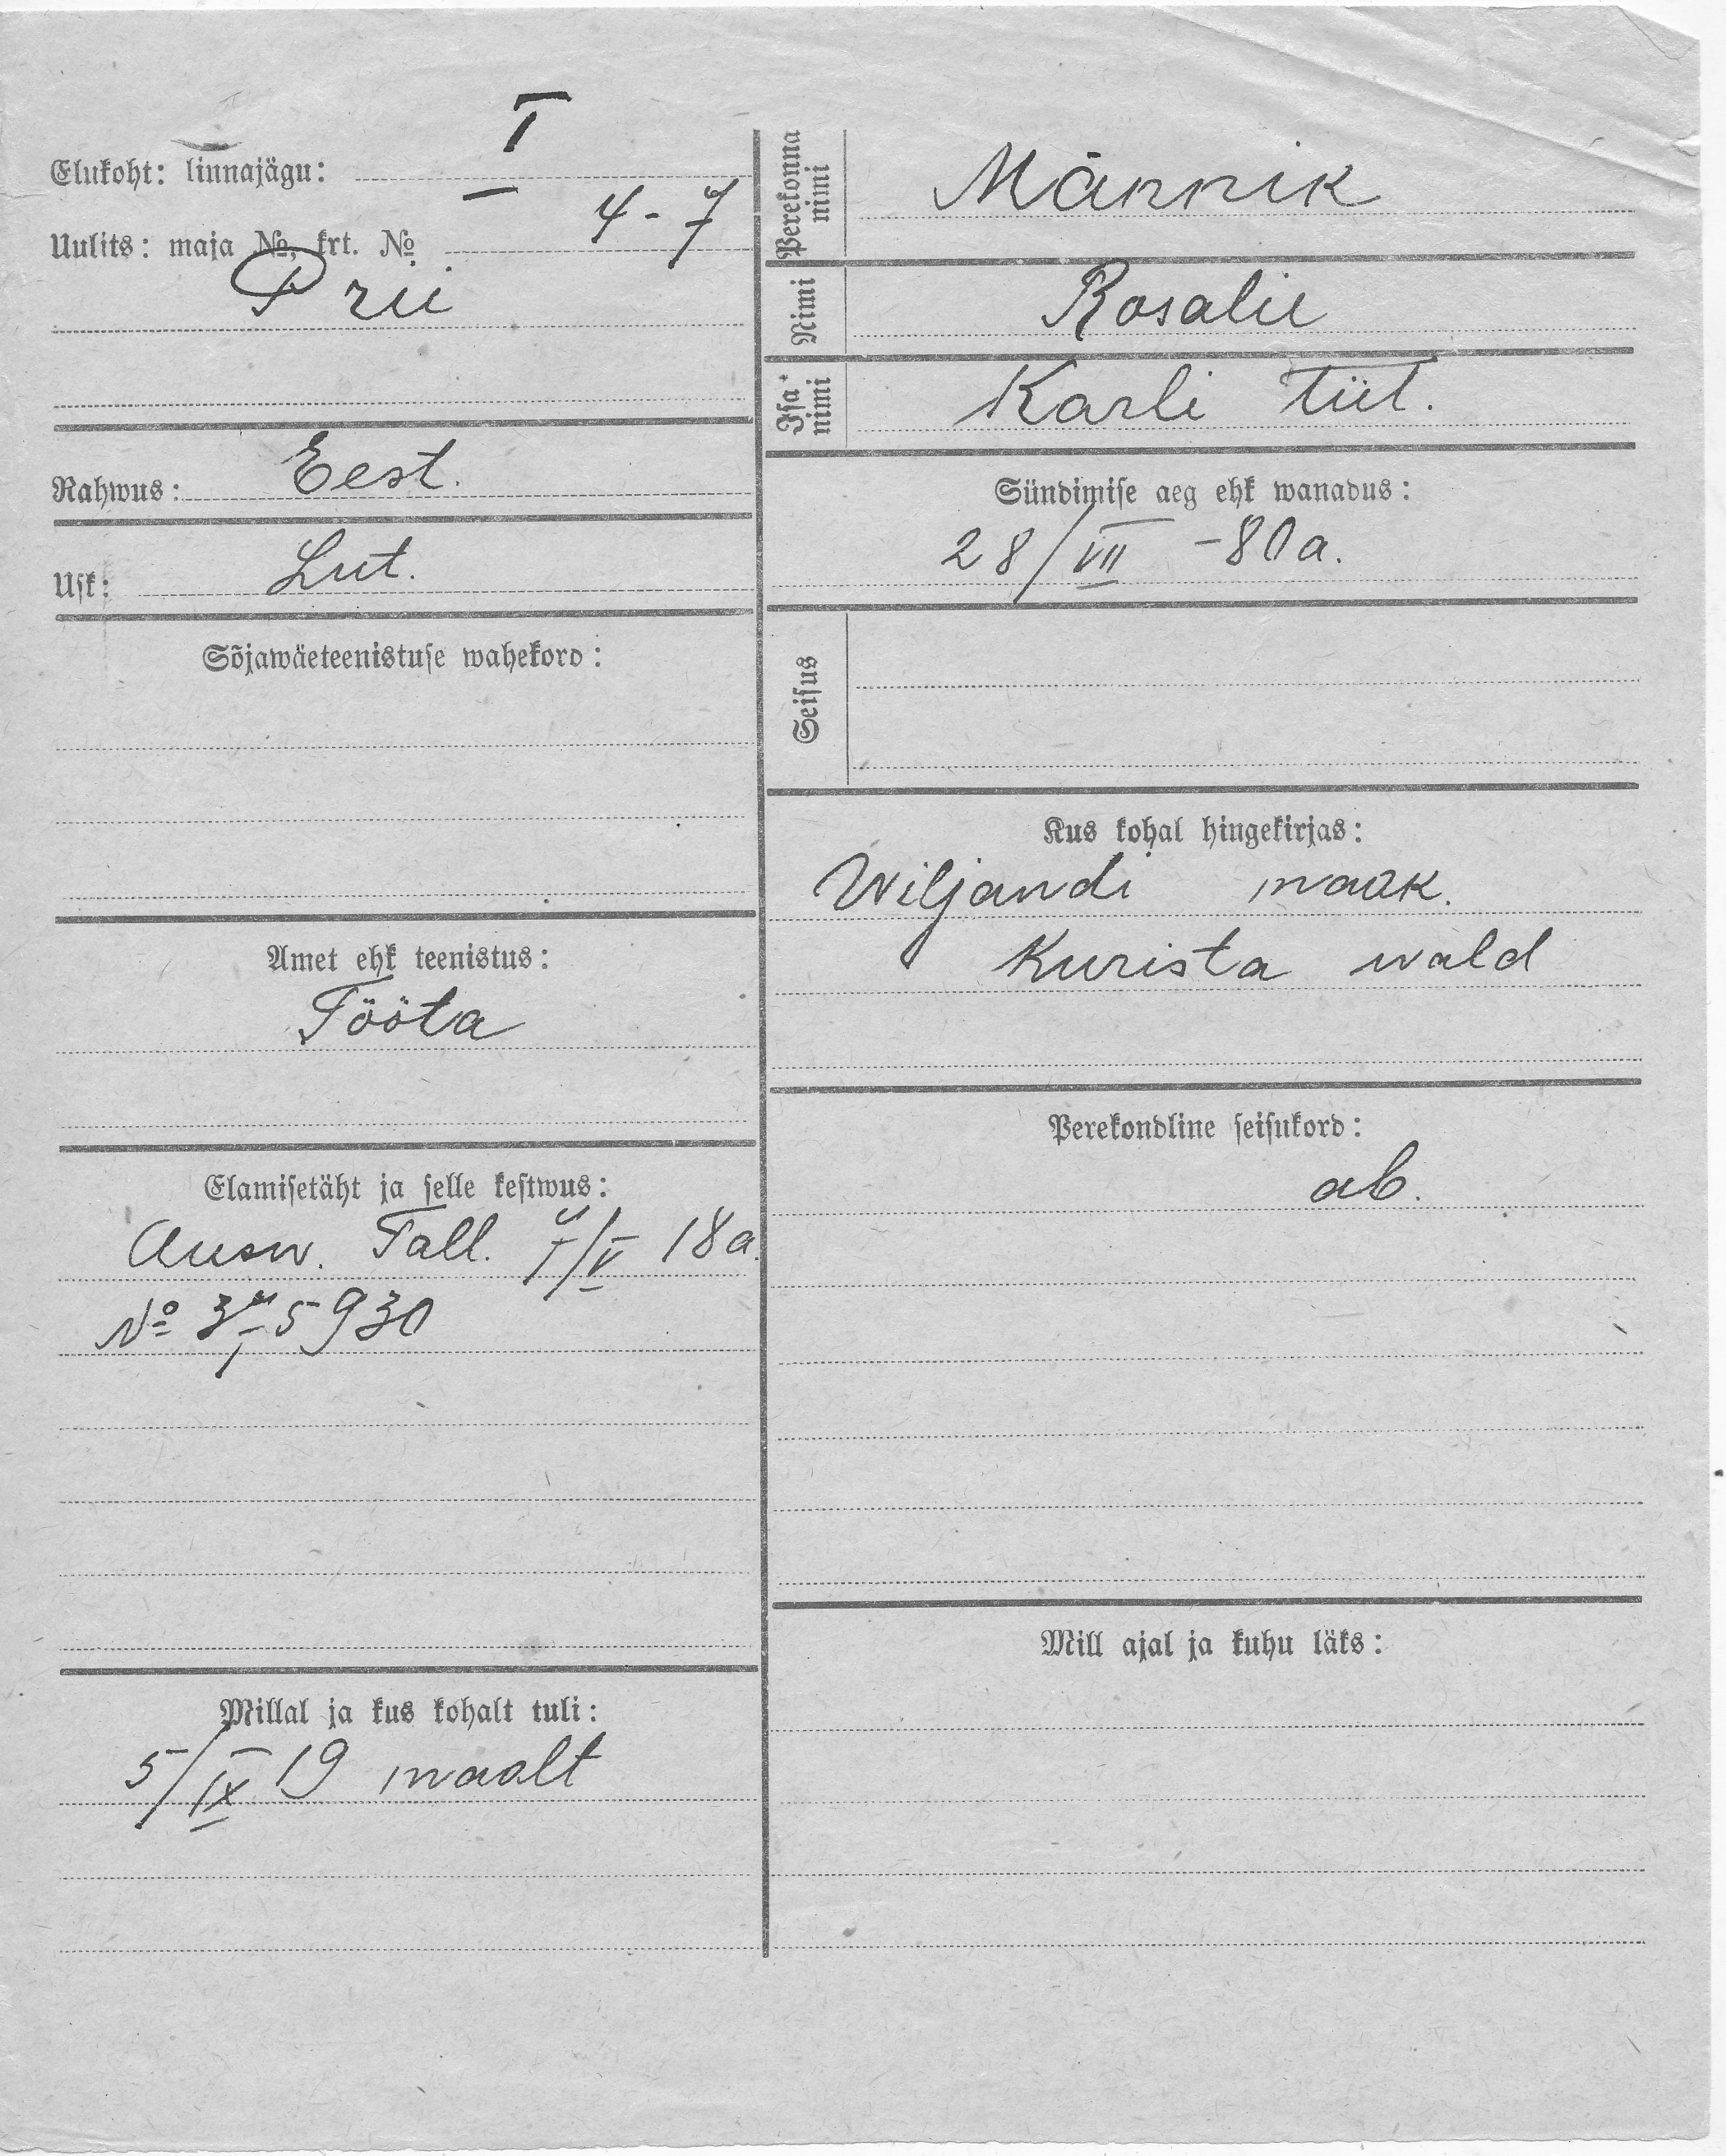 Elukoht: linnajägu: I
Uulits: maja №, krt. № 4-7
Prii
Rahwus: Eest.
Usk: Lut.
Sõjawäeteenistuse wahekord:
Amet ehk teenistus:
Tööta
Elamisetäht ja selle kestwus:
Ausw. Tall. 7/V 18a.
№ 375930
Millal ja kus kohalt tuli:
5/IX 19 maalt
Perekonna nimi Männik
Nimi Rosalie
Isa nimi Karli tüt.
Sündimise aeg ehk wanadus:
28/VII -80a.
Seisus
Kus kohal hingekirjas:
Wiljandi maak.
Kurista wald
Perekondline seisukord:
ab.
Mill ajal ja kuhu läks: